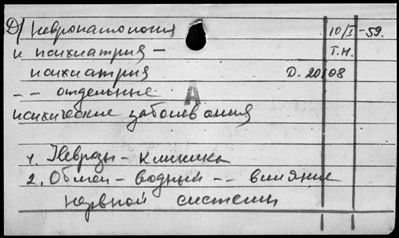 Д) Невропатология 10/I-59.
и психиатрия - Т.Н.
психиатрия D. 20108
-- отдельные
А
психические заболевания
1. Неврозы - клиника
2. Обмен - водный -- влияние
нервной системы